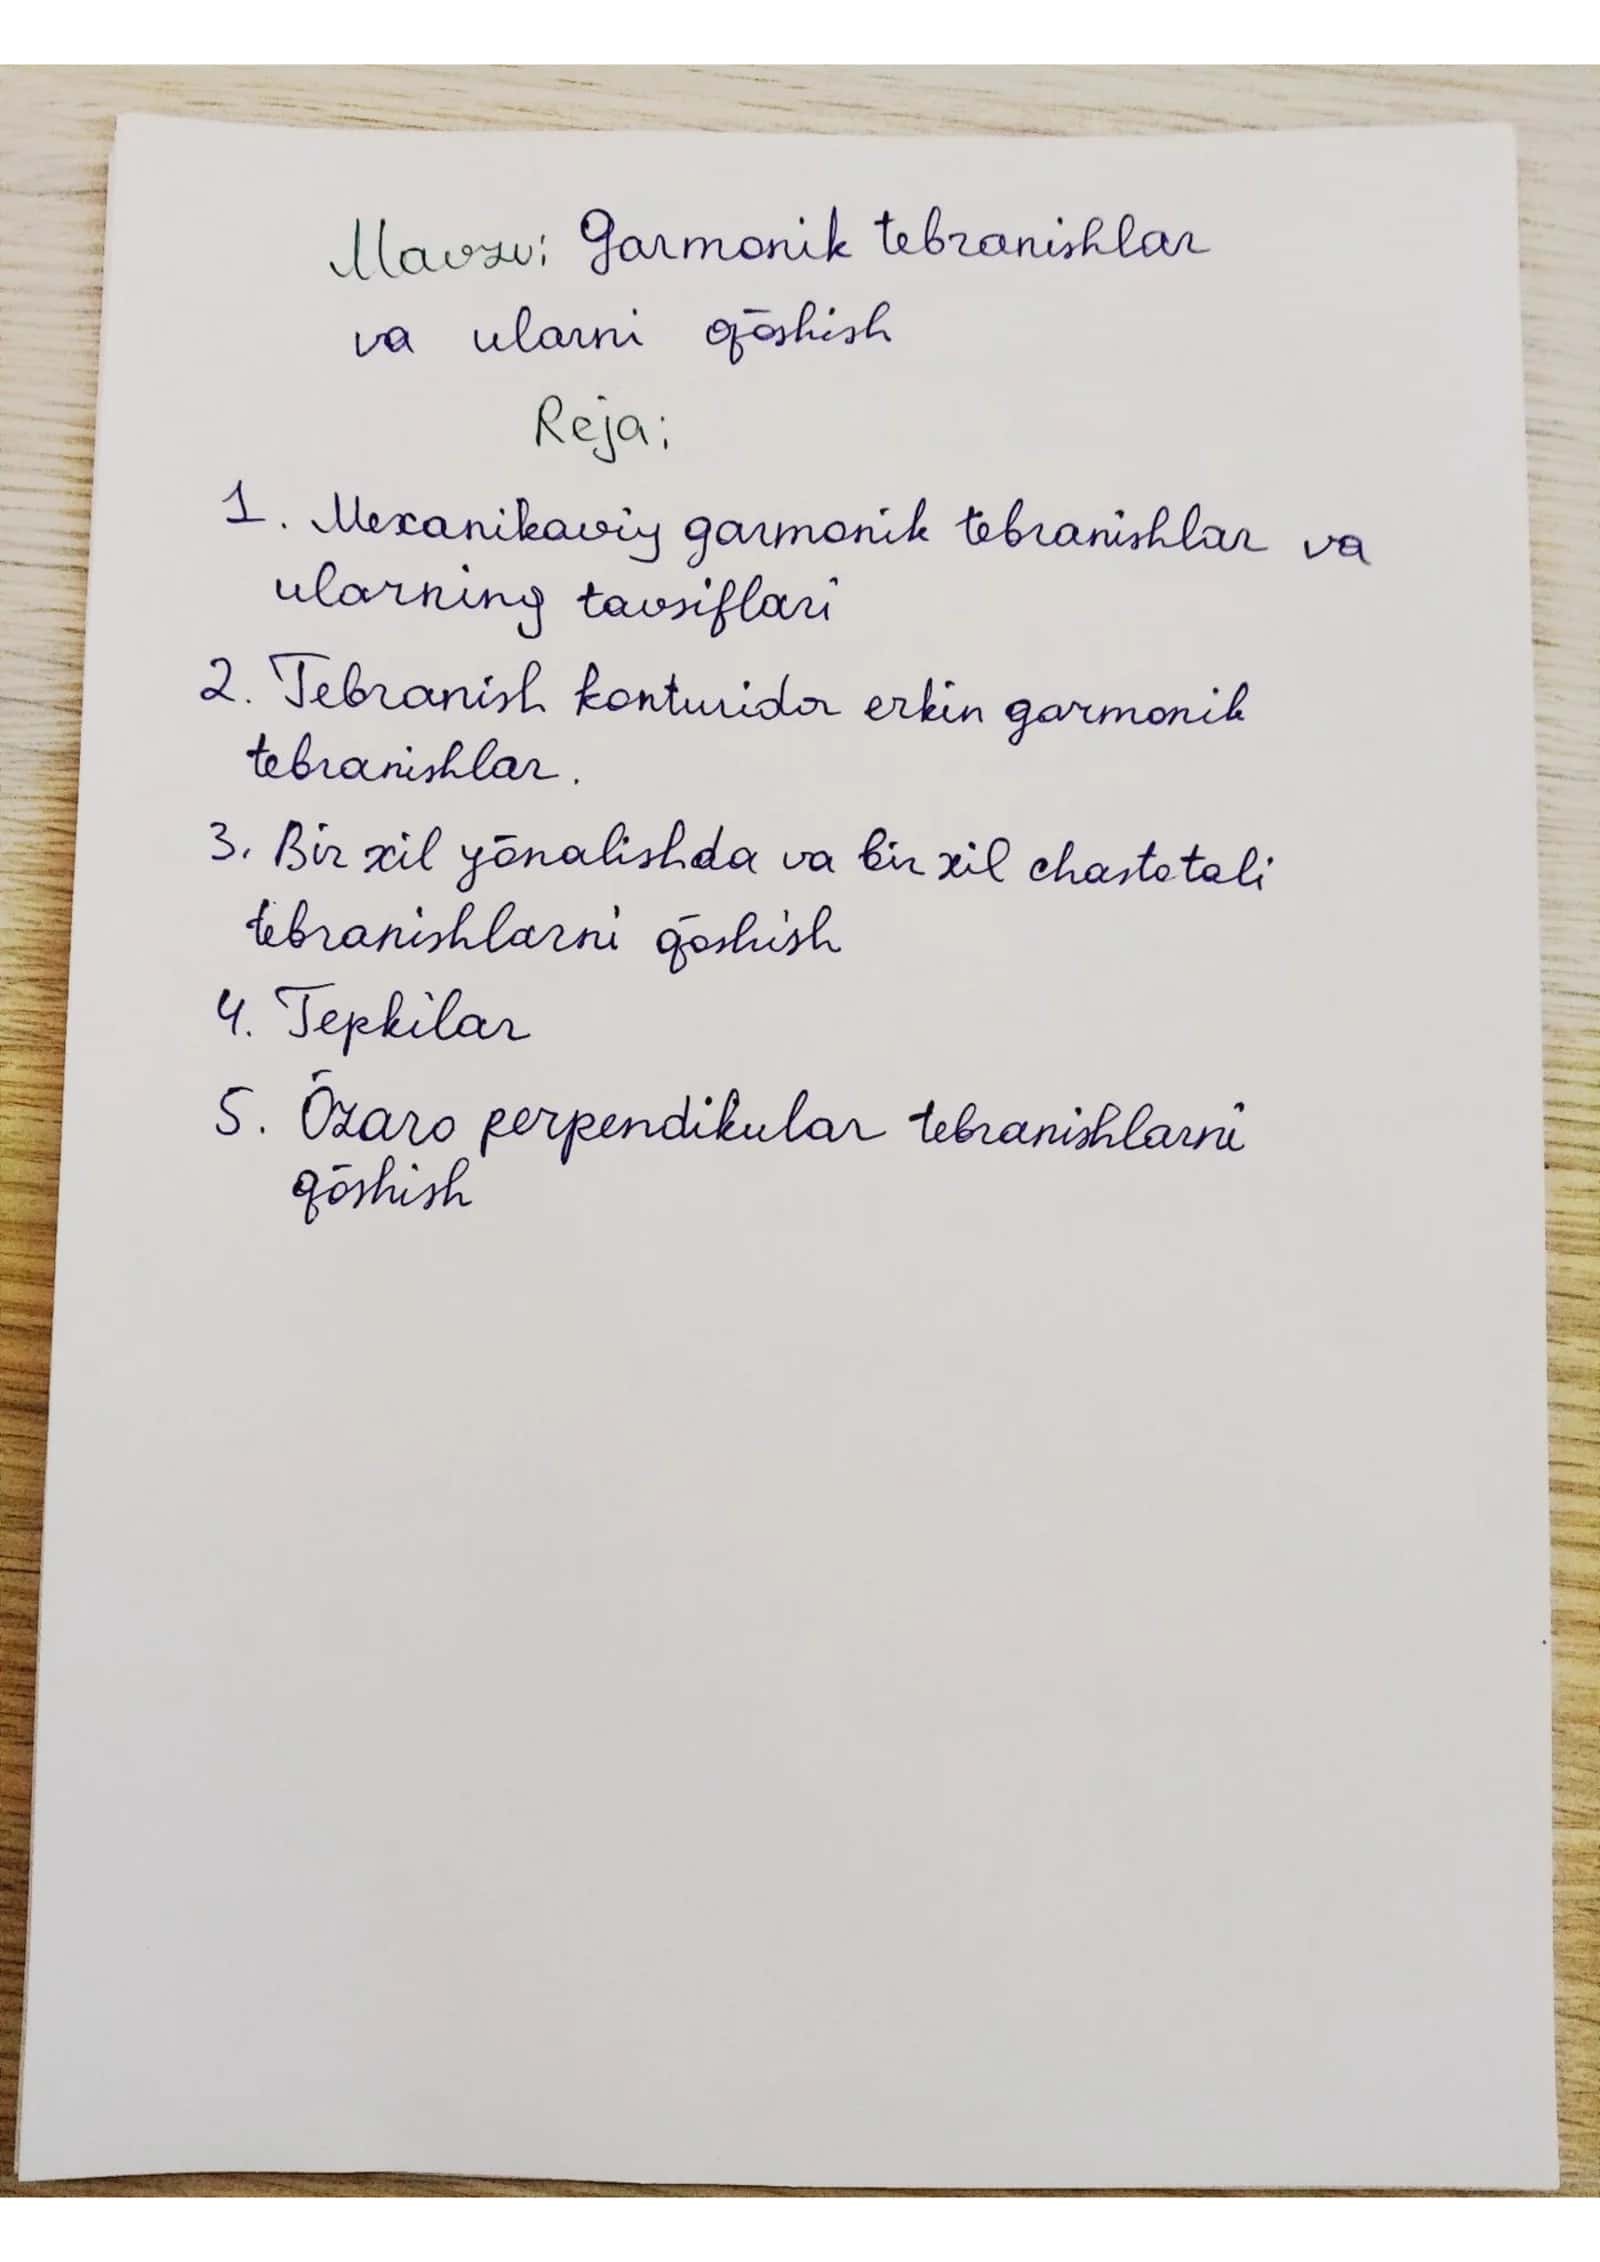 Mavzu: Garmonik tebranishlar
va ularni qōshish
Reja:
1. Mexanikaviy garmonik tebranishlar va
ularning tavsiflari
2. Tebranish konturida erkin garmonik
tebranishlar.
3. Bir xil yōnalishda va bir xil chastotali
tebranishlarni qōshish
4. Tepkilar
5. Ōzaro perpendikular tebranishlarni
qōshish